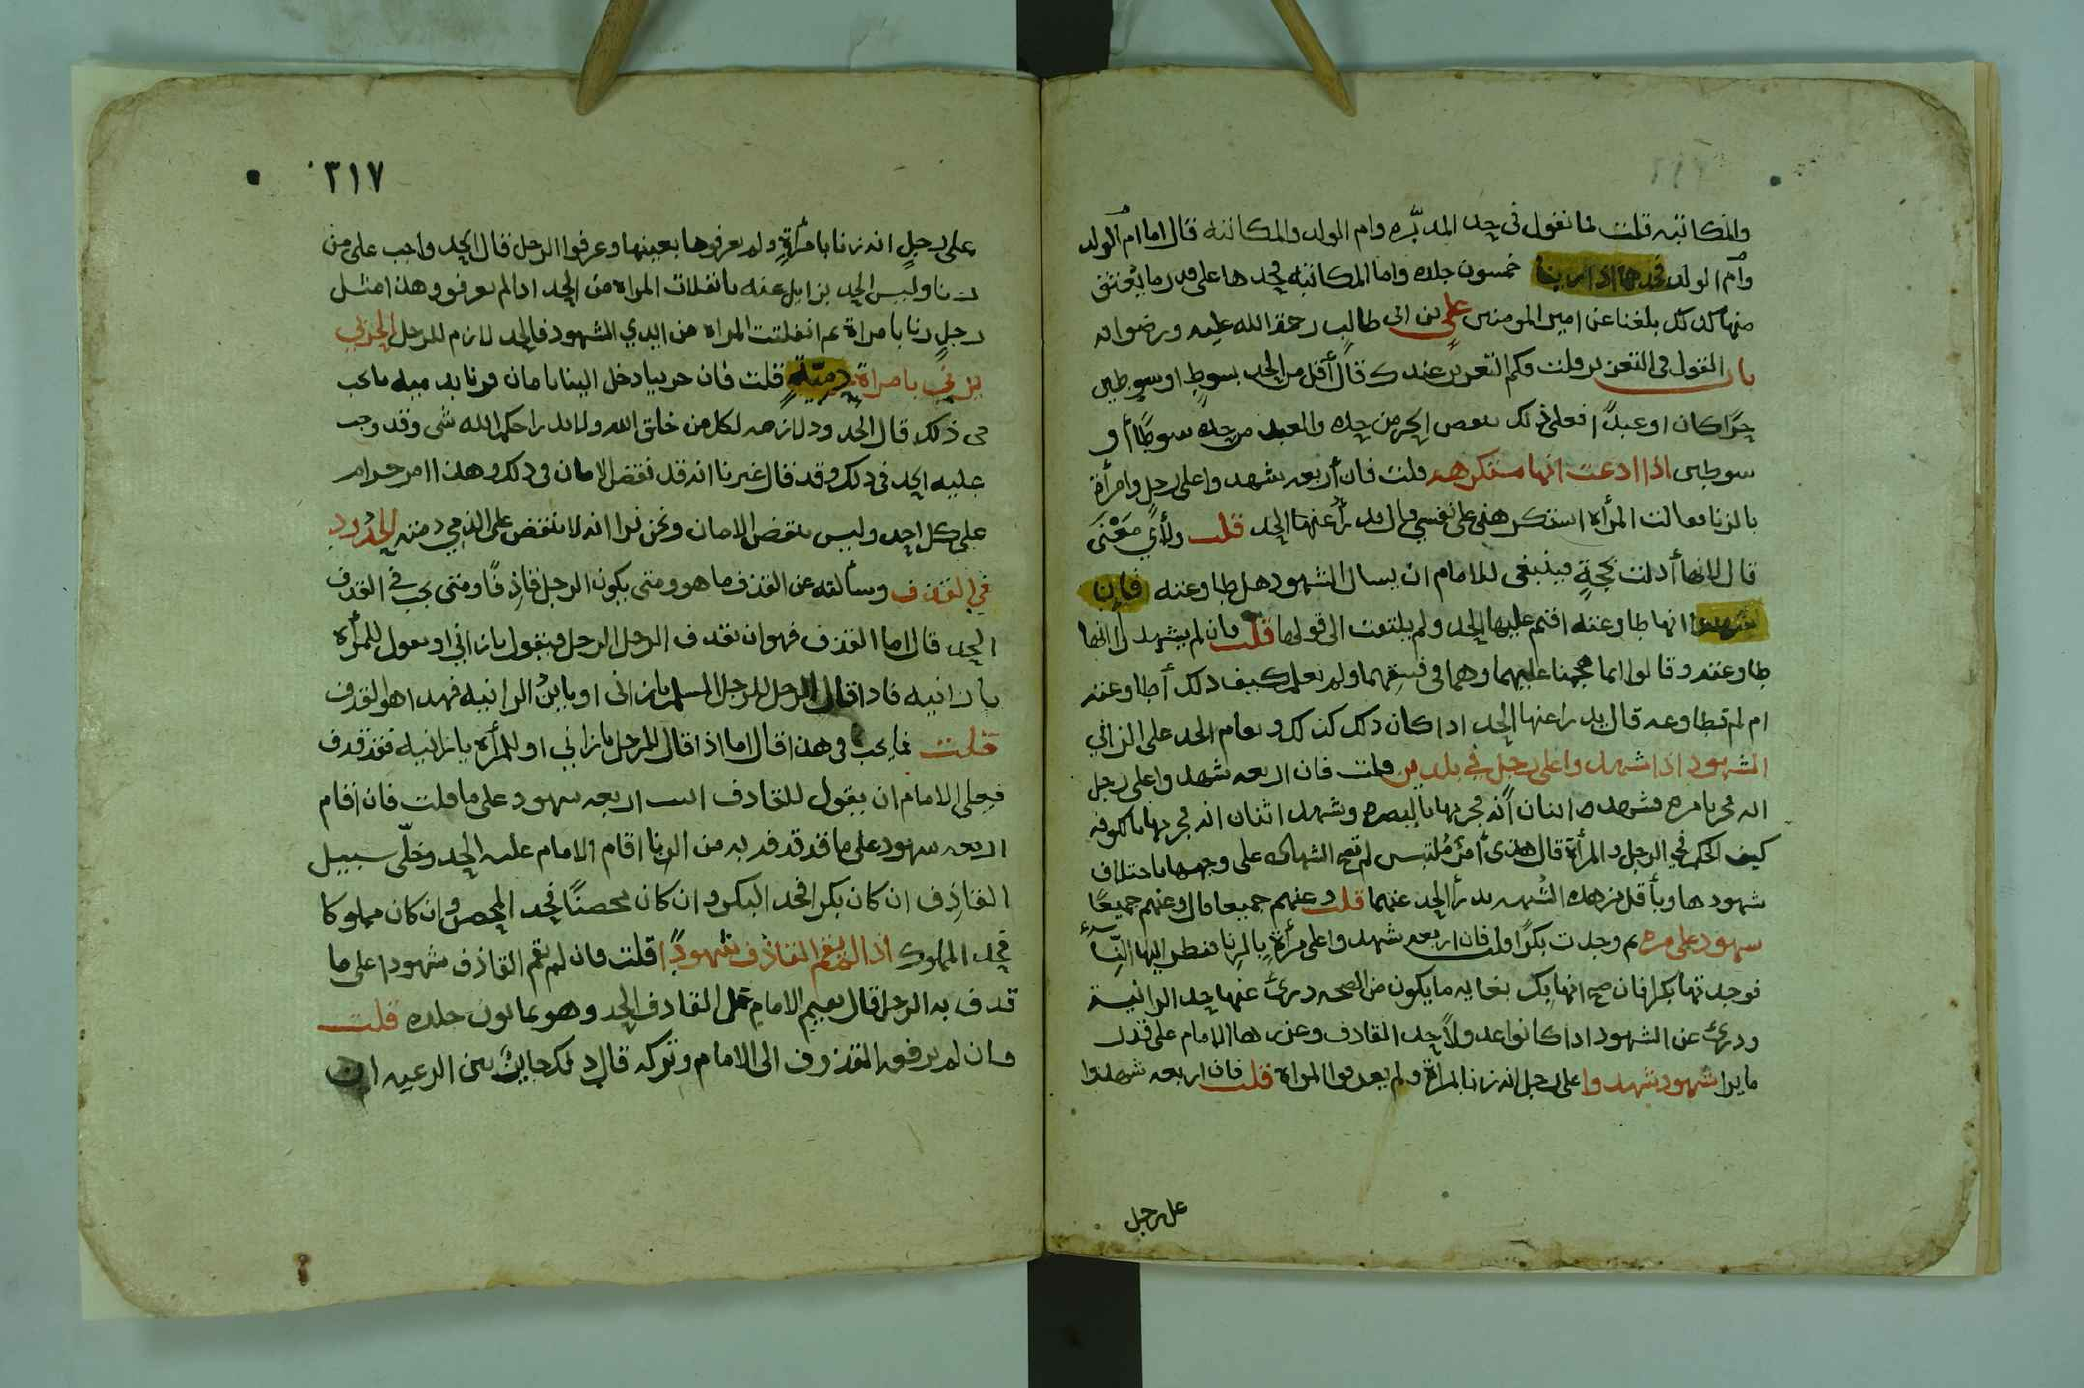 والمكاتبه قلت فما تقول في حد المدبّره وام الولد والمكاتبه قال اما ام الولد
وام الولد فحدها اذا زينا خمسون جلده واما المكاتبه فحدها على قدر ما يعتق
منها كذلك بلغنا عن امير المومنين علي بن ابي طالب رحمة الله عليه ورضوانه
باب القول في التعزير وقلت وكم التعزير عندك قال أقل من الحد بسوط او سوطين
حرًا كان او عبدًا فعلى ذلك ينقص الحر من حده والعبد من حده سوطًا أو
سوطين اذا ادعت انها مستكرهه قلت فان أربعه شهدوا على رجل وامرأة
بالزنا فقالت المرأه استكرهني على نفسي قال يدرأ عنها الحد قلت ولأي معنى
قال لانها أدلت بحجةٍ فينبغي للامام ان يسال الشهود هل طاوعته فان
شهدوا انها طاوعته اقيم عليها الحد ولم يلتفت الى قولها قلت فان لم يشهدوا انها
طاوعته وقالوا انما هجمنا عليهما وهما في فسقهما ولم نعلم كيف ذلك أطاوعته
ام لم تطاوعه قال يدرا عنها الحد اذا كان ذلك كذلك ويقام الحد على الزاني
الشهود اذا شهدوا على رجل في بلدين قلت فان اربعه شهدوا على رجل
انه فجر بامره فشهد اثنان أنه فجر بها بالبصره وشهد اثنان انه فجر بها بالكوفه
كيف الحكم في الرجل والمرأة قال هذى أمرٌ مُلتبس لم تصح الشهاده على وجهها باختلاف
شهودها وبأقل من هذه الشُبهه يدرأ الحد عنهما قلت وعنهم جميعا قال وعنهم جميعًا
شهود على مره ثم وجدت بكرًا قلت فان اربعه شهدوا على مرأةٍ بالزنا فنظر اليها النّسآء
فوجدتها بكرا فان صح انها بكر بغايه ما يكون من الصحه درئ عنها حد الزانيه
ودرئ عن الشهود اذا كانوا عدولاً حد القاذف وعزرها الامام على قدر
ما يرا شهود شهدوا على رجل انه زنا بامراة ولم يعرفوا المراة قلت فان اربعه شهدوا
على رجل
٣١٧
على رجلٍ انه زنا بامرأةٍ ولم يعرفوها بعينها وعرفوا الرجل قال الحد واجب على من
زنا وليس الحد بزايل عنه بانفلات المراه من الحد اذا لم تعرف وهذا مثل
رجلٍ زنا بامراة ثم انفلتت المراه من ايدي الشهود فالحد لازم للرجل الحربي
يزني بامراة ذميّةٍ قلت فان حربيا دخل الينا بامان فزنا بذميه ما يجب
في ذلك قال الحدود لازمه لكل من خلق الله ولا يدرا حكم الله شي وقد وجب
عليه الحد في ذلك وقد قال غيرنا انه قد نقض الامان في ذلك وهذا امر حرام
على كل احد وليس ينقض الامان ونحن نرا انه لا ينقض على الذمي ذمته الحدود
في القذف وسألته عن القذف ما هو ومتى يكون الرجل قاذِفًا ومتى يجب في القذف
الحد قال اما القذف فهو ان يقذف الرجل الرجل فيقول يازاني او يقول للمرأه
يازانيه فاذا قال الرجل للرجل المسلم يازاني او يا بن الزانيه فهذا هو القذف
قلت فما يجب في هذا قال اما اذا قال للرجل يازاني او للمرأه يازانيه فقد قذف
فعلى الامام ان يقول للقاذف ائت اربعه شهود على ما قلت فان اقام
اربعه شهود على ما قد قذف به من الزنا اقام الامام عليه الحد وخلّى سبيل
القاذِف ان كان بكرا فحد البكر وان كان محصنًا فحد المحصن وان كان مملوكا
فحد المملوك اذا لم يقم القاذف شهودًا قلت فان لم يقم القاذف شهودا على ما
قذف به الرجل قال يقيم الامام على القاذف الحد وهو ثمانون جلده قلت
فان لم يرفعه المقذوف الى الامام وتركه قال ذلك جايزٌ بين الرعيه ان